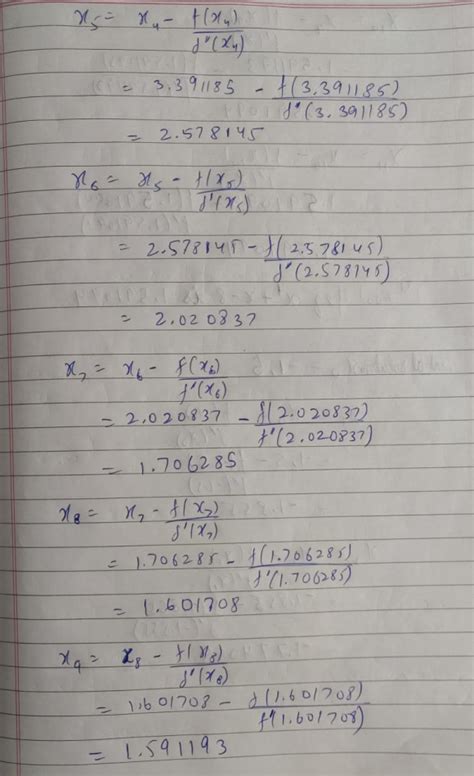 x₅ = x₄ - f(x₄)/f'(x₄)
= 3.391185 - f(3.391185)/f'(3.391185)
= 2.578145
x₆ = x₅ - f(x₅)/f'(x₅)
= 2.578145 - f(2.578145)/f'(2.578145)
= 2.020837
x₇ = x₆ - f(x₆)/f'(x₆)
= 2.020837 - f(2.020837)/f'(2.020837)
= 1.706285
x₈ = x₇ - f(x₇)/f'(x₇)
= 1.706285 - f(1.706285)/f'(1.706285)
= 1.601708
x₉ = x₈ - f(x₈)/f'(x₈)
= 1.601708 - f(1.601708)/f'(1.601708)
= 1.591193